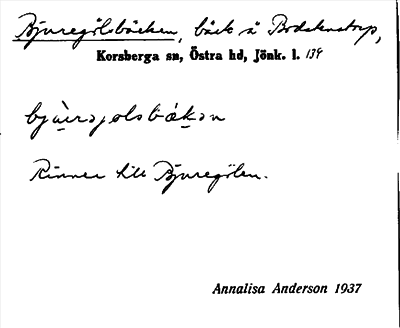 Bjuregölsbäcken, bäck å Bodakvatorp,
Korsberga sn, Östra hd, Jönk. l. 134
bjùrəjolsbɑ́kən
Rinner till Bjuregölen.
Annalisa Anderson 1937